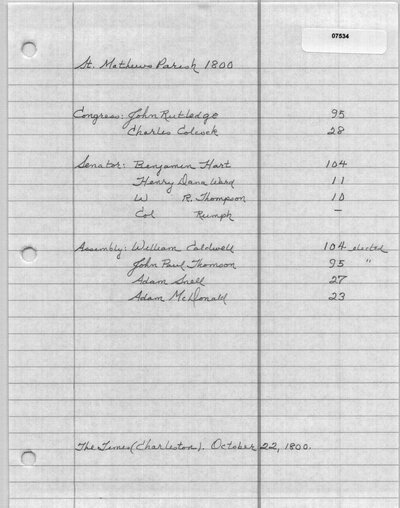 07534
St. Mathews Parish 1800
Congress: John Rutledge 95
Charles Colcock 28
Senator: Benjamin Hart 104
Henry Dana Ward 11
W R. Thompson 10
Col Rumph –
Assembly: William Caldwell 104 elected
John Paul Thomson 95 "
Adam Snell 27
Adam McDonald 23
The Times (Charleston). October 22, 1800.